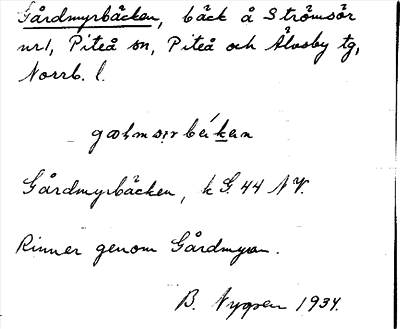 Gårdmyrbäcken, bäck å Strömsör
nr1, Piteå sn, Piteå och Älvsby tg,
Norrb. l.
Gårdmyrbäcken, k G. 44 NV.
Rinner genom Gårdmyran.
B. Nygren 1934.